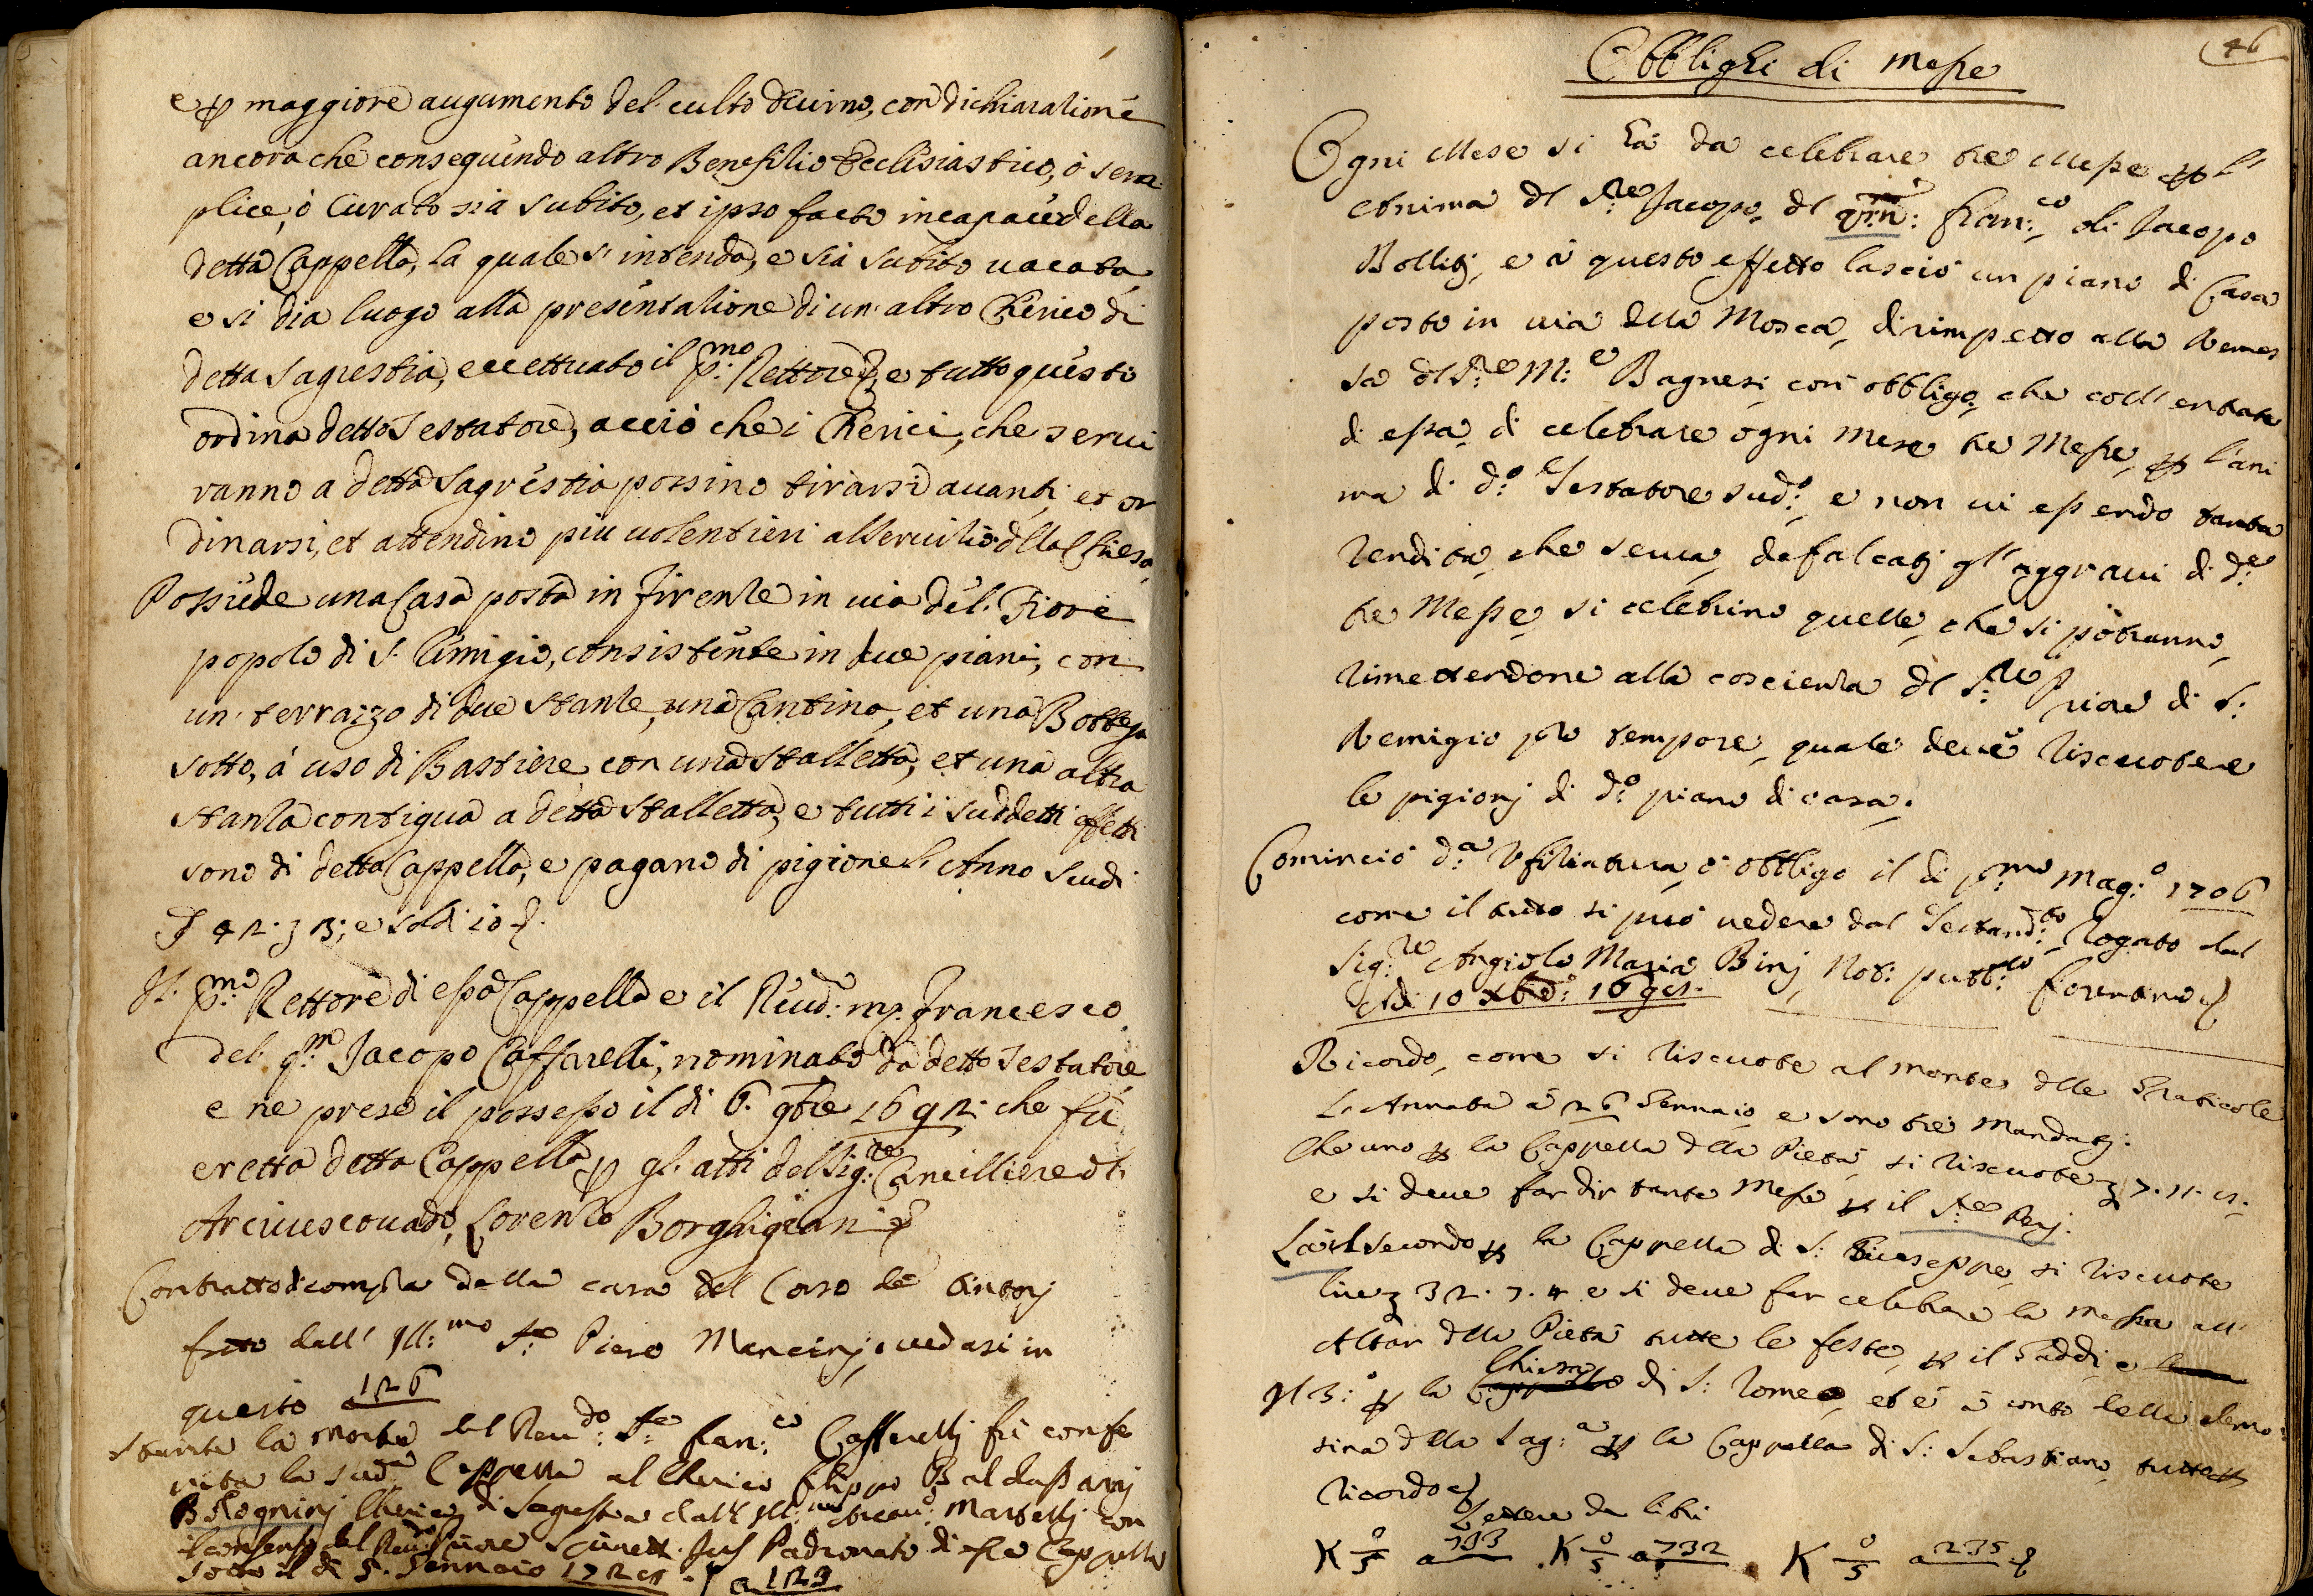 e p maggiore augumento del culto diuino, con dichiaratione
ancora che conseguendo altro Benefitio Ecclisiastico, ò sem
plice, ò Curato sia subito, et ipso facto incapace della
detta Cappella, la quale s'intenda, e sia subito uacata
e si dia luogo alla presentatione di un'altro Cherico di
detta Sagrestia, eccettuato il p:mo Rettore, e tutto questo
ordina detto Testatore, acciò che i Cherici, che serui
ranno a detta Sagrestia possino tirarsi auanti, et or
dinarsi, et attendino piu uolentieri al seruitio dlla Chiesa,
Possiede una Casa posta in Firenze in uia del Fiore
popolo di S. Rimigio, consistente in due piani, con
un' terrazzo di due stanze, una Cantina, et una Bottega
sotto, à uso di Bastiere con una stalletta, et una altra
stanza contigua a detta stalletta, e tutti i suddetti effetti
sono di detta Cappella, e pagano di pigione l'Anno scudi
42. 3; e soldi 10
Il p:mo Rettore di essa Cappella e il Reud: mr. Francesco
del qm Jacopo Caffarelli, nominato da detto Testatore
e ne prese il possesso il di 6. 9bre 1692. che fù
eretta detta Cappella p gl'atti del Sig:re Cancilliere dl
Arciuescouado, Lorenzo Borghigiani
Contratto di compra della casa del Corso de Tintorj
fatto dall' Ill:mo Sre Piero Mancinj, uedasi in
questo a 126
Stante la morte del Reu:do Sre Fran:co Caffarellj fù confe
rita la sud:a Cappella al Cherico Filippo Baldassarj
Bologninj Cherico di Sagrestia dall' Ill:mo Martellj con
il consenso del Reud: Priore Jus Padronato di essa Cappella
sotto il di 5. Gennaio 1725. a 123
46
Obblighi di Messe
Ogni Mese si hà da celebrare tre Messe p l'
Anima dl S:re Jacopo dl qm: Fran:co di Jacopo
Bollitj, e à questo effetto lasciò un piano di Casa
posto in uia della Mosca, dirimpetto alla Rimes
sa dl S:re M:e Bagnesi con obbligo, che coll'entrate
di essa, di celebrare ogni Mese tre Messe, p l'ani
ma di d:o Testatore sud:o, e non ui essendo tanta
rendita, che serua, defalcatj gl'aggraui di d:e
tre Messe, si celebrino quelle, che si potranno,
rimettendone alla coscienza dl S:re Priore di S:
Remigio pro tempore, quale deue riscuotere
le pigionj di d:o piano di casa.
Cominciò d:a Vfitiatura, ò obbligo il di p:mo Mag:o 1706
come il tutto si può uedere dal Testam:to Rogato dal
Sig:re Angiolo Maria Binj Not: pubb:co fiorentino
Adi 10 Xbre: 1695.
Ricordo, come si riscuote al monte dlle Graticole
l'Annata à 26 Gennaio, e sono tre Mandatj:
Che uno p la Cappella dlla Pietà, si riscuote 7. 11. 5.
e si deue far dir tante Messe p il S:re Perj.
L'altro secondo p la Cappella di S: Giuseppe, si riscuote
lire 32. 7. 4 e si deue far celebrare la Messa all'
Altar dlla Pietà tutte le feste, p il Taddei e
Il 3:o p la Chiesa di S: Romeo, et è à conto della elemo
sina dlla Sag:a p la Cappella di S: Sebastiano, tutto p
ricordo
Lettere da libri
K 0/5 a 193 . K 0/5 a 732 . K 0/5 a 235